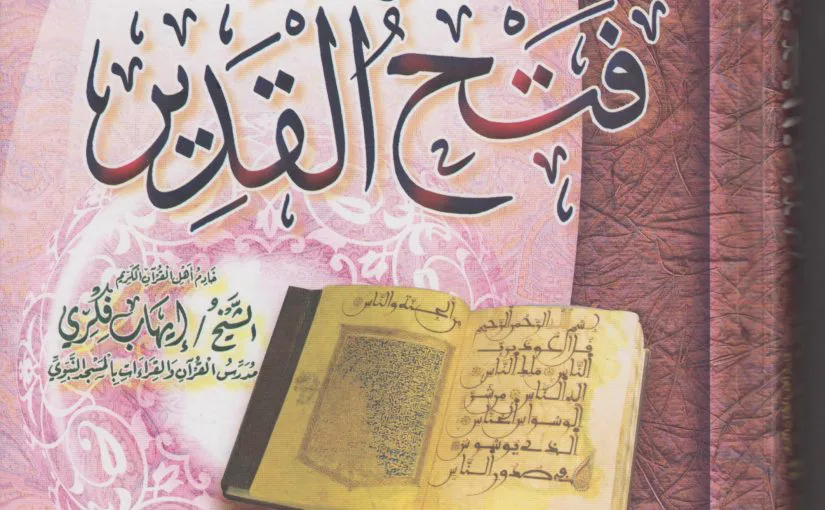 فَتْحُ الْقَدِيرِ
خَادِمُ أَهْلِ الْقُرْآنِ الْكَرِيمِ
الشَّيْخُ / إِيهَاب فِكْرِي
مُدَرِّسُ الْقُرْآنِ وَالْقِرَاءَاتِ بِالْمَسْجِدِ النَّبَوِيِّ
الجنة والناس
بسم الله الرحمن الرحيم
قل أعوذ برب
الناس ملك الناس
إله الناس من شر
الوسواس الخناس
الذي يوسوس
في صدور الناس